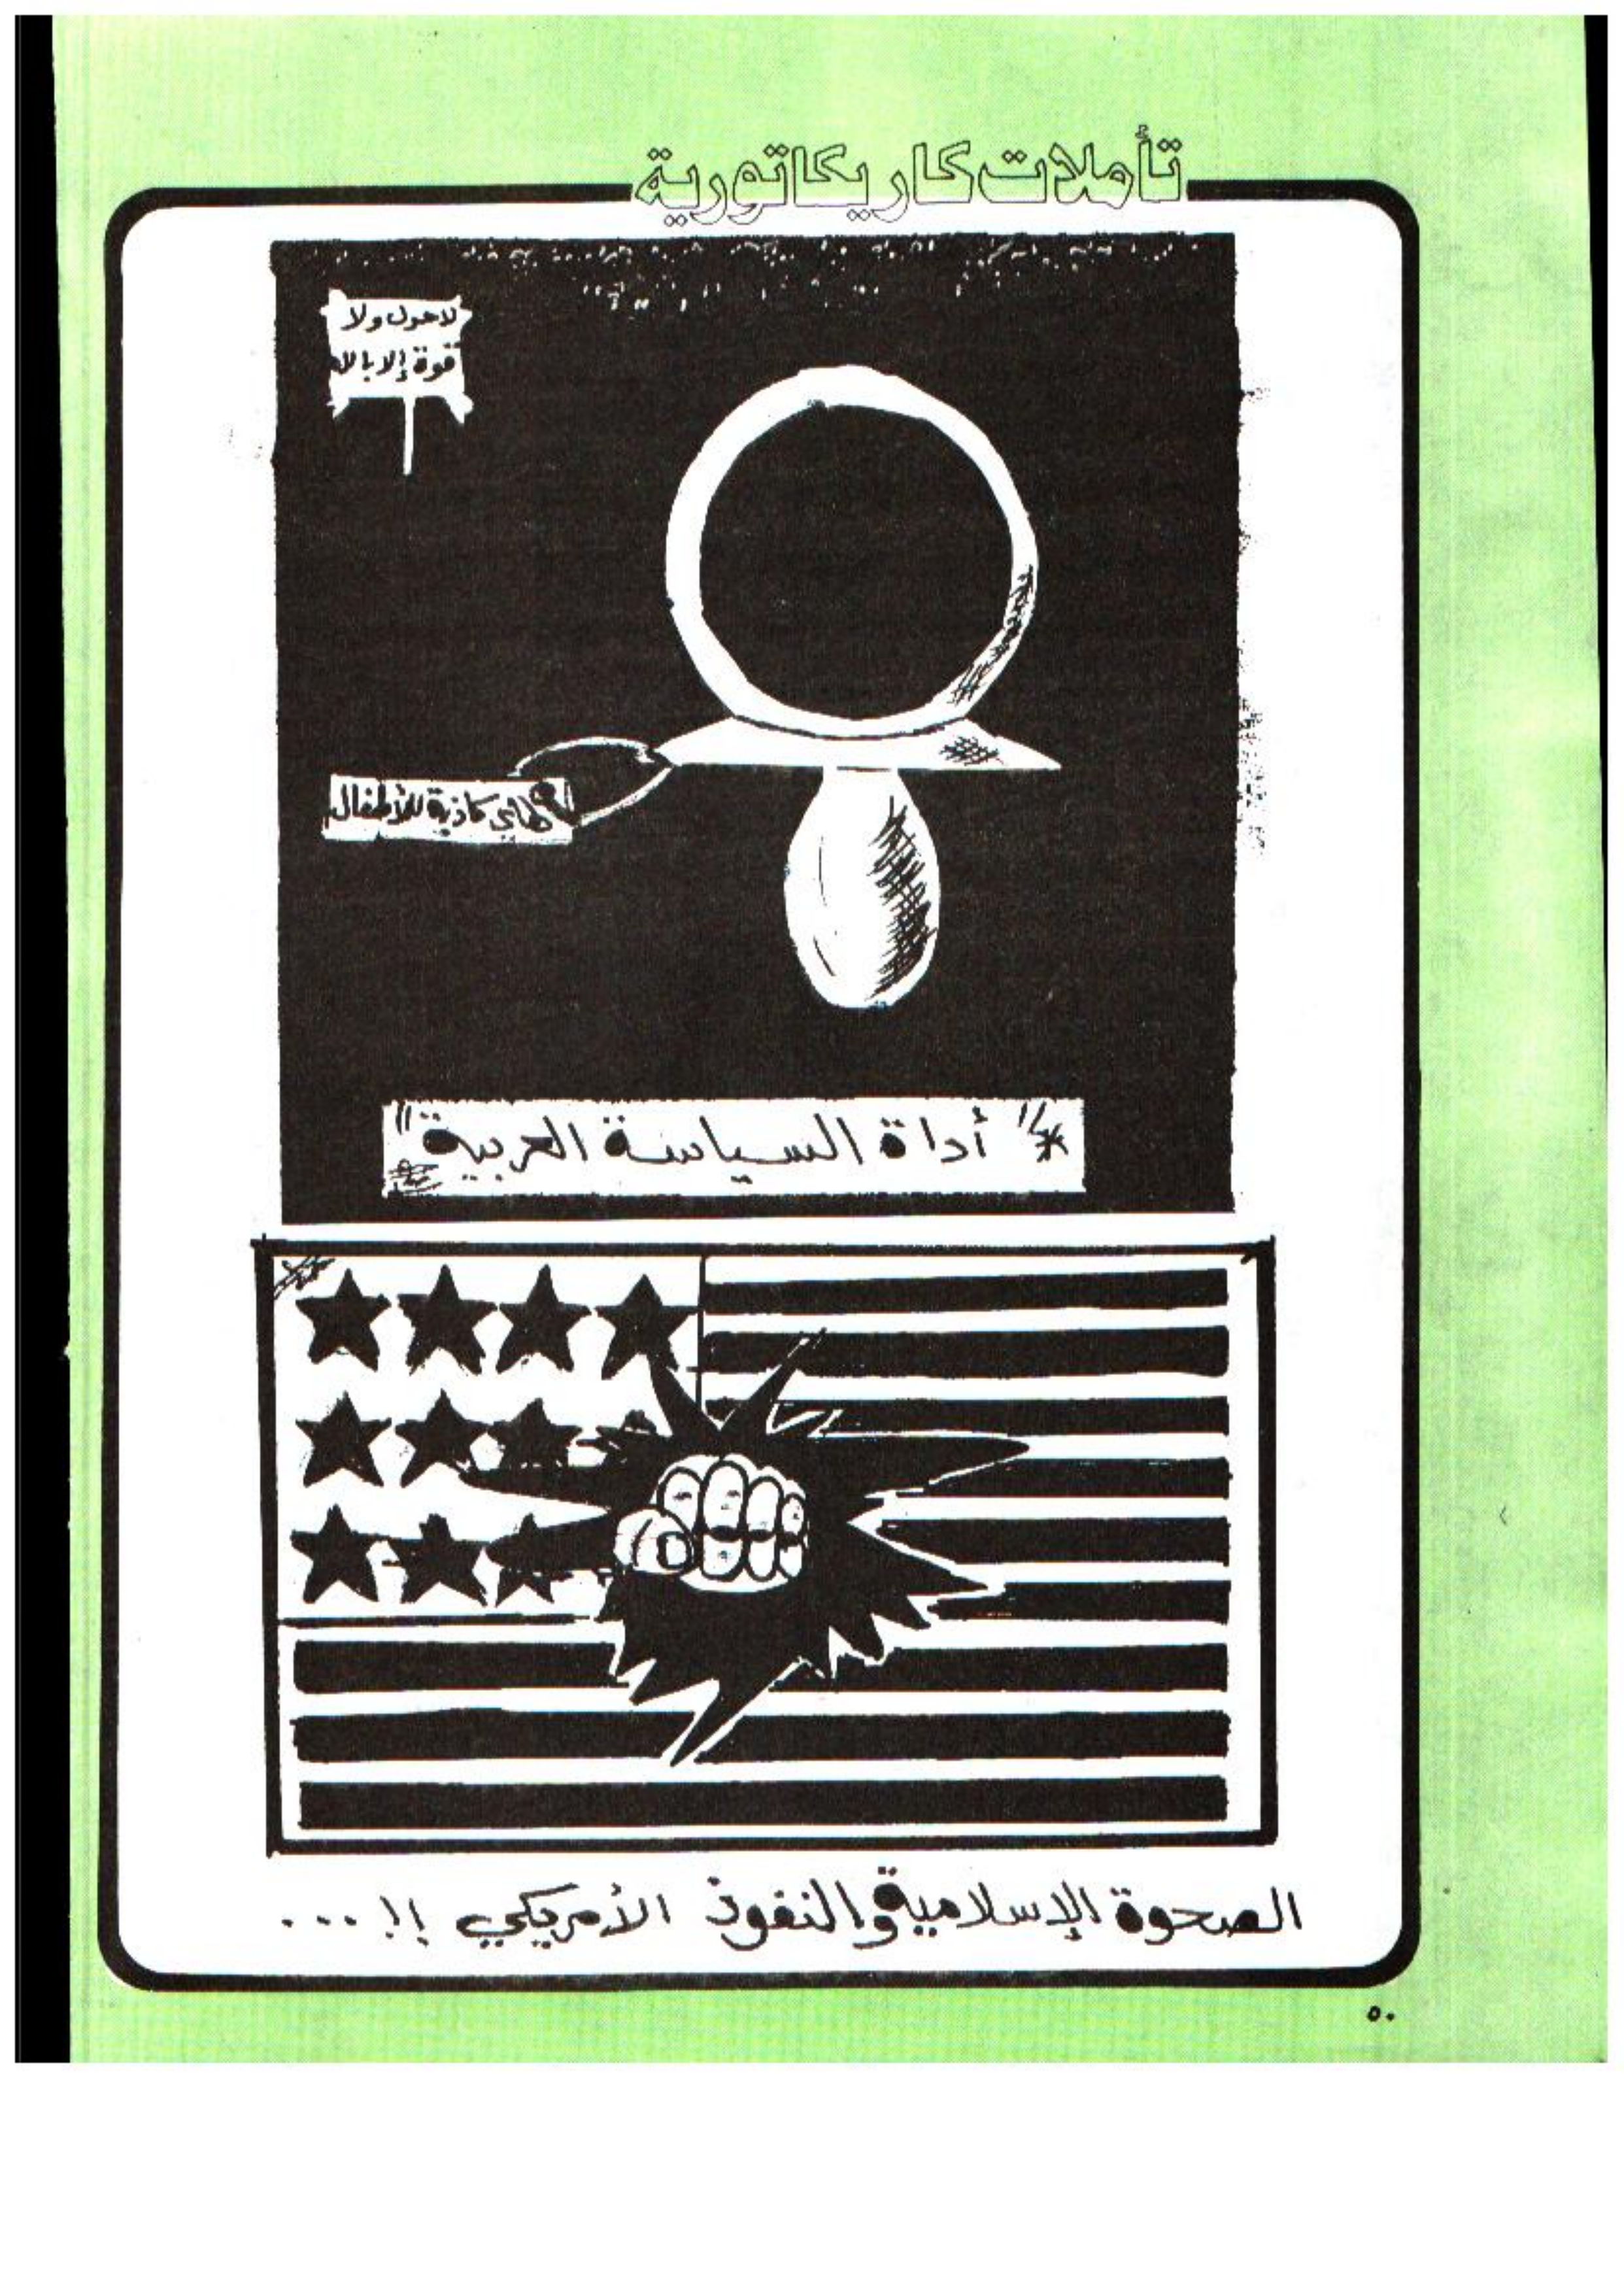 تأملات كاريكاتورية
لا حول ولا
قوة إلا بالله
كاذبة للأطفال
* "أداة السياسة العربية"
الصحوة الإسلامية والنفوذ الأمريكي !! ...
٥٠